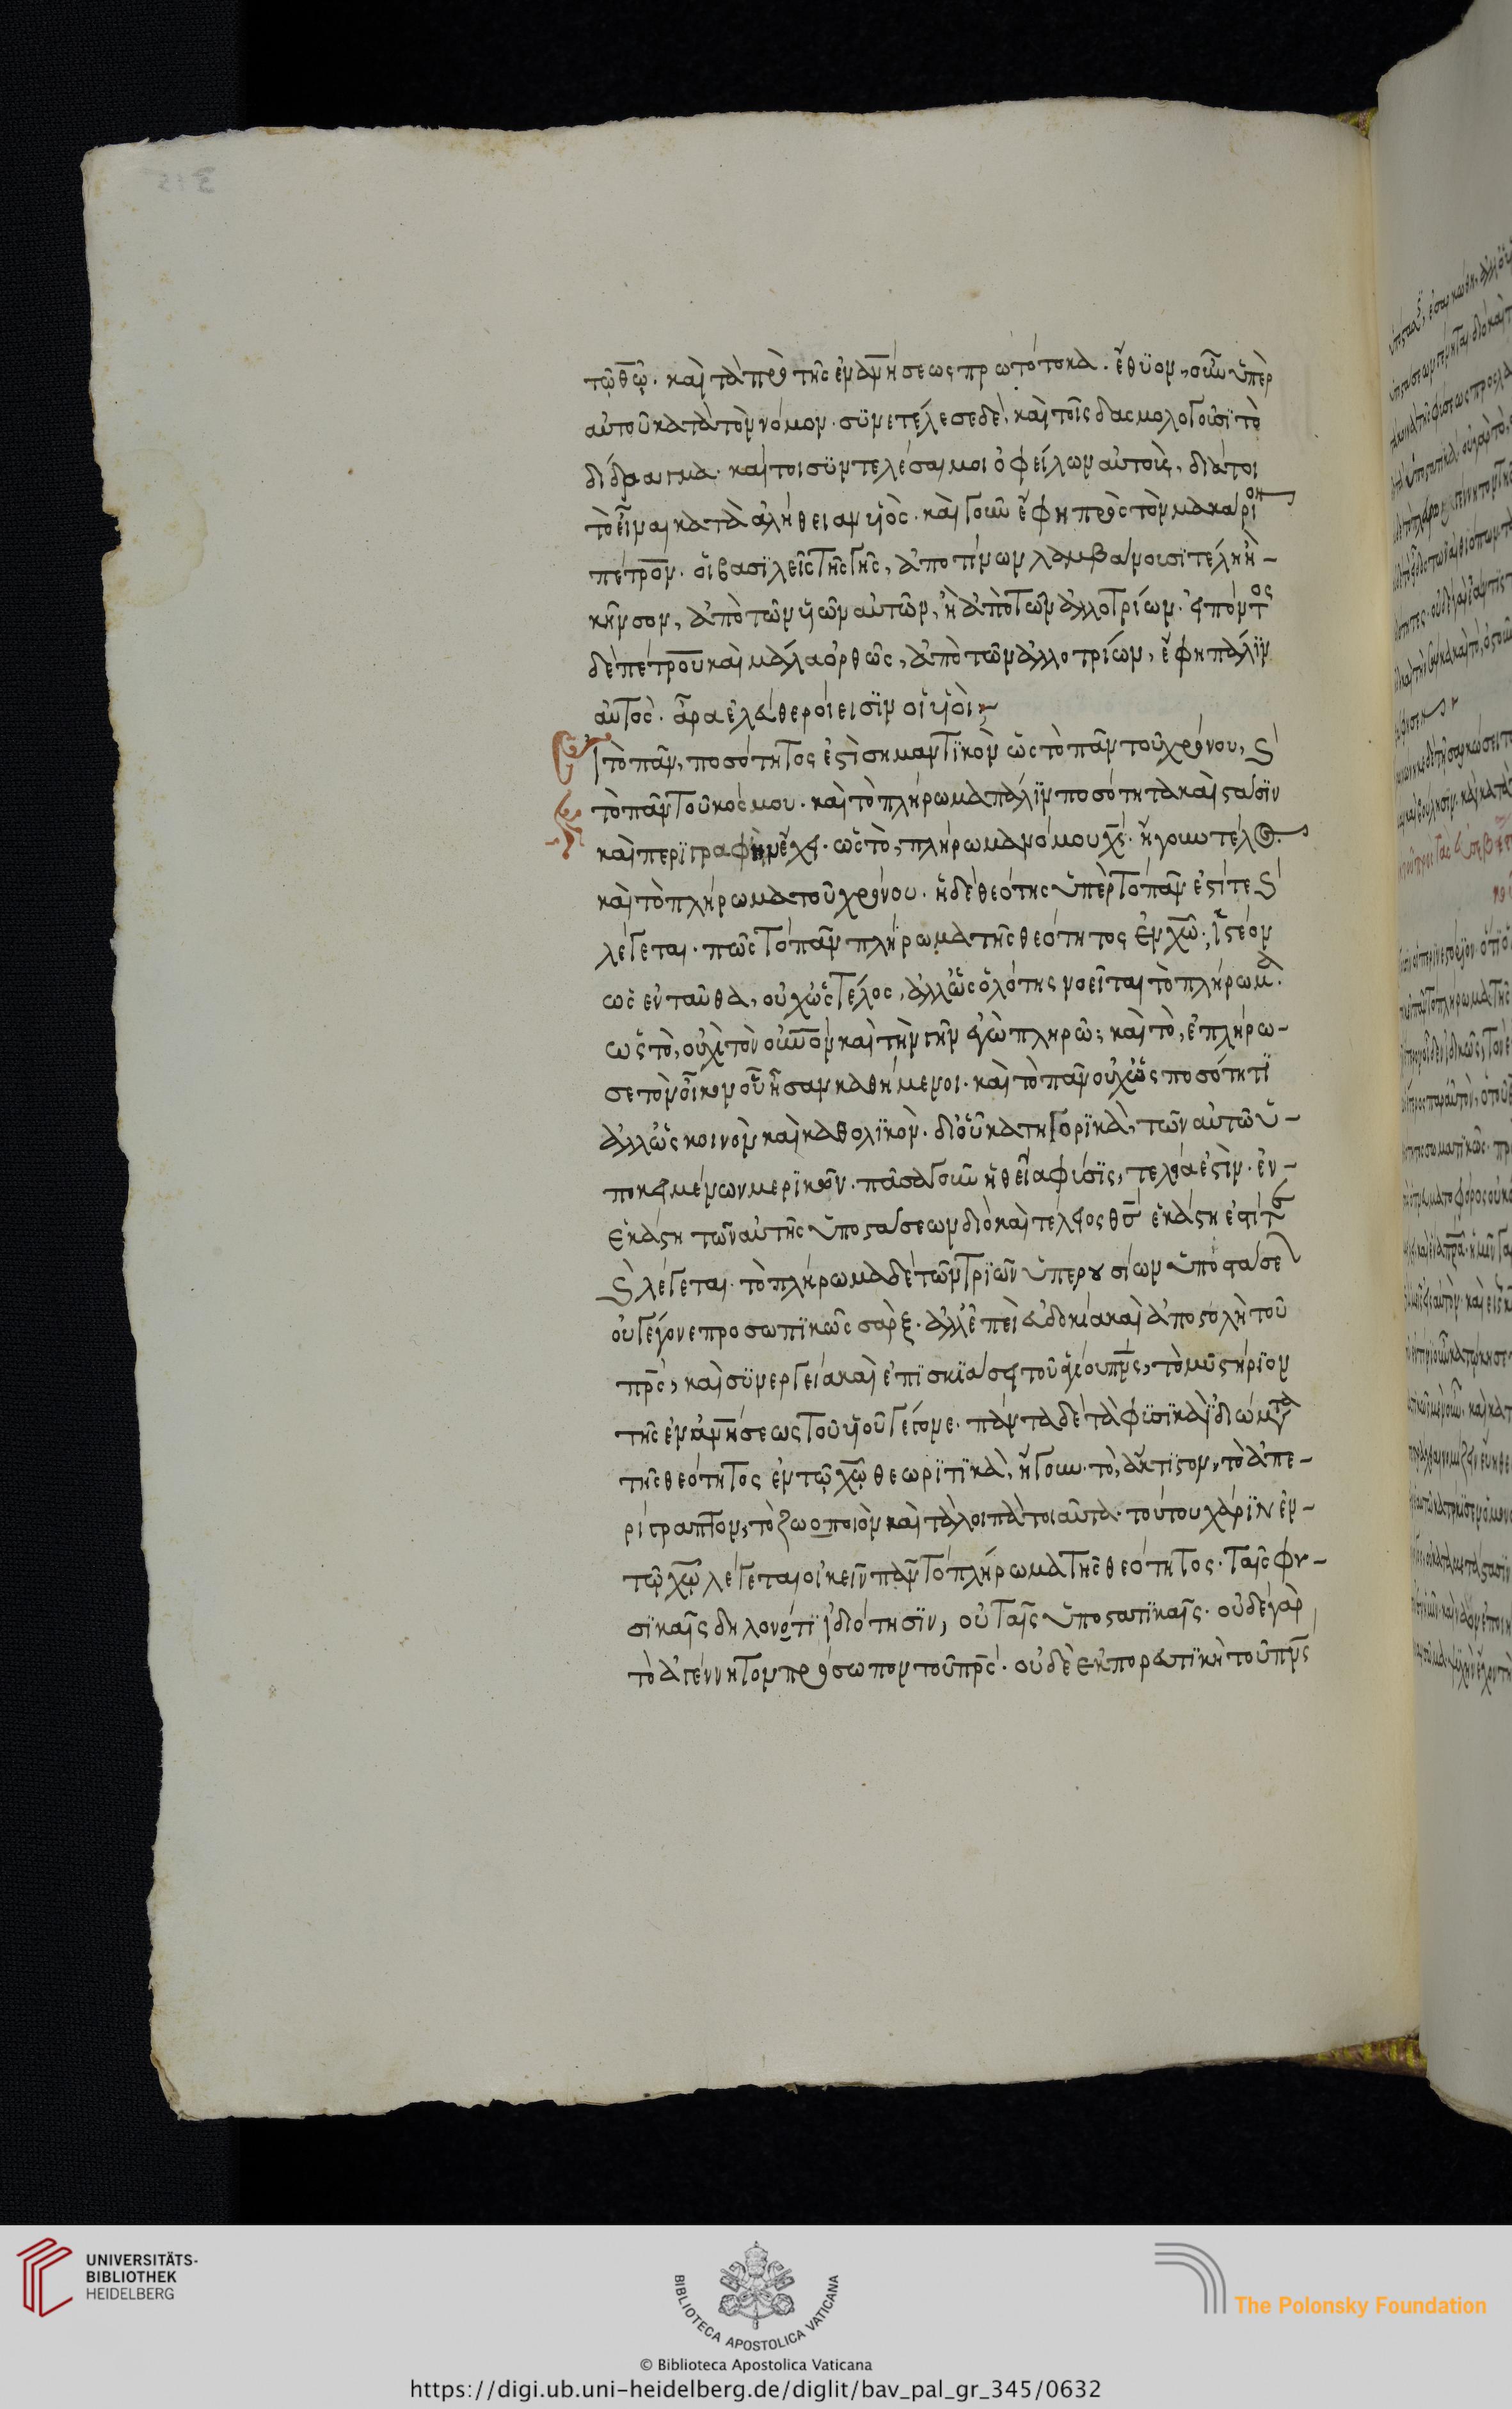 τῷ θῷ. καὶ τὰ πρὸ τῆς ἐνανήσεως πρωτότοκα. ἔθυον, οὖν ὑπὲρ
αὐτοῦ κατὰ τὸν νόμον. συνετέλεσε δὲ, καὶ τοῖς δασμολογοῦσϊ τὸ
δίδραγμα. καίτοι συντελέσαι μὴ ὀφείλων αὐτοῖς, διάτοι
τὸ εἶναι κατὰ ἀλήθειαν υἱὸς. καὶ γοῦν ἔφη πρὸς τὸν μακάριον
πέτρον. οἱ βασϊλεῖς τῆς γῆς, ἀπο τίνων λαμβάνουσϊ τέλη ἢ-
κῆνσον, ἀπὸ τῶν υἱῶν αὐτῶν, ἢ ἀπὸ τῶν ἀλλοτρίων. εἰπόντος
δὲ πέτρου καὶ μάλα ὀρθῶς, ἀπὸ τῶν ἀλλοτρίων, ἔφη πάλϊν
αὐτὸς. ἆρα ἐλεύθεροί εισϊν οἱ υἱοὶ;
τὸ πᾶν, ποσότητος ἐστὶ σημαντϊκὸν ὡς τὸ πᾶν τοῦ χρόνου, καὶ
τὸ πᾶν τοῦ κόσμου. καὶ τὸ πλήρωμα πάλϊν ποσότητα καὶ στάσϊν
καὶ περϊγραφὴν ἔχει. ὡς τὸ, πλήρωμα νόμου χς. ἤγουν τέλος.
καὶ τὸ πλήρωμα τοῦ χρόνου. ἡ δὲ θεότης ὑπὲρ τὸ πᾶν ἐστί τε καὶ
λέγεται. πῶς τὸ πᾶν πλήρωμα τῆς θεότητος ἐν χῶ; ἰστέον
ὡς ἐνταῦθα, οὐχ ὡς τέλος, ἀλλ' ὡς ὁλότης νοεῖται τὸ πλήρωμα.
ὡς τὸ, οὐχὶ τὸν οὐνον καὶ τὴν γῆν ἐγὼ πληρῶ; καὶ τὸ, ἐπλήρω-
σε τὸν οἶκον οὗ ἦσαν καθήμενοι. καὶ τὸ πᾶν οὐχ ὡς ποσότητϊ
ἀλλ' ὡς κοινὸν καὶ καθολϊκὸν. διὸ οὖ κατηγορϊκὰ, τῶν αὐτῶ ὑ-
ποκειμένων μερϊκῶν. πᾶσα γοῦν ἡ θεία φύσϊς, τελεία ἐστὶν. ἐν-
ἑκάστη τῶν αὐτῆς ὑποστάσεων διὸ καὶ τέλειος θς ἑκάστη ἐστί τε
καὶ λέγεται. τὸ πλήρωμα δὲ τῶν τρϊῶν ὑπερουσίων ὑποστάσε
οὐ γέγονε προσωπϊκῶς σὰρξ. ἀλλ' ἐπεὶ εὐδοκία καὶ ἀποστολὴ τοῦ
πρς, καὶ συνεργεία καὶ ἐπισκϊάσει τοῦ ἁγίου πνς, τὸ μυστήρϊον
τῆς ἐνανήσεως τοῦ υἱοῦ γέγονε. πάντα δὲ τὰ φυσϊκὰ ἰδϊώματα
τῆς θεότητος ἐν τῷ χῷ θεωρϊτϊκὰ, ἤγουν. τὸ, ἄκτϊστον, τὸ ἀπε-
ρίγραπτον, τὸ ζωοποιὸν καὶ τὰ λοιπὰ τοιαῦτα. τούτου χάρϊν ἐν-
τῷ χῷ λέγεται οἰκεῖν πᾶν τὸ πλήρωμα τῆς θεότητος. ταῖς φυ-
σϊκαῖς δηλονότι ἰδιότησϊν, οὐ ταῖς ὑποστατϊκαῖς. οὐδὲ γὰρ
τὸ ἀγέννητον πρόσωπον τοῦ πρς. οὐδὲ ἐκπορευτϊκὴ τοῦ πνς
UNIVERSITÄTS-
BIBLIOTHEK
HEIDELBERG
BIBLIOTECA APOSTOLICA VATICANA
The Polonsky Foundation
© Biblioteca Apostolica Vaticana
https://digi.ub.uni-heidelberg.de/diglit/bav_pal_gr_345/0632